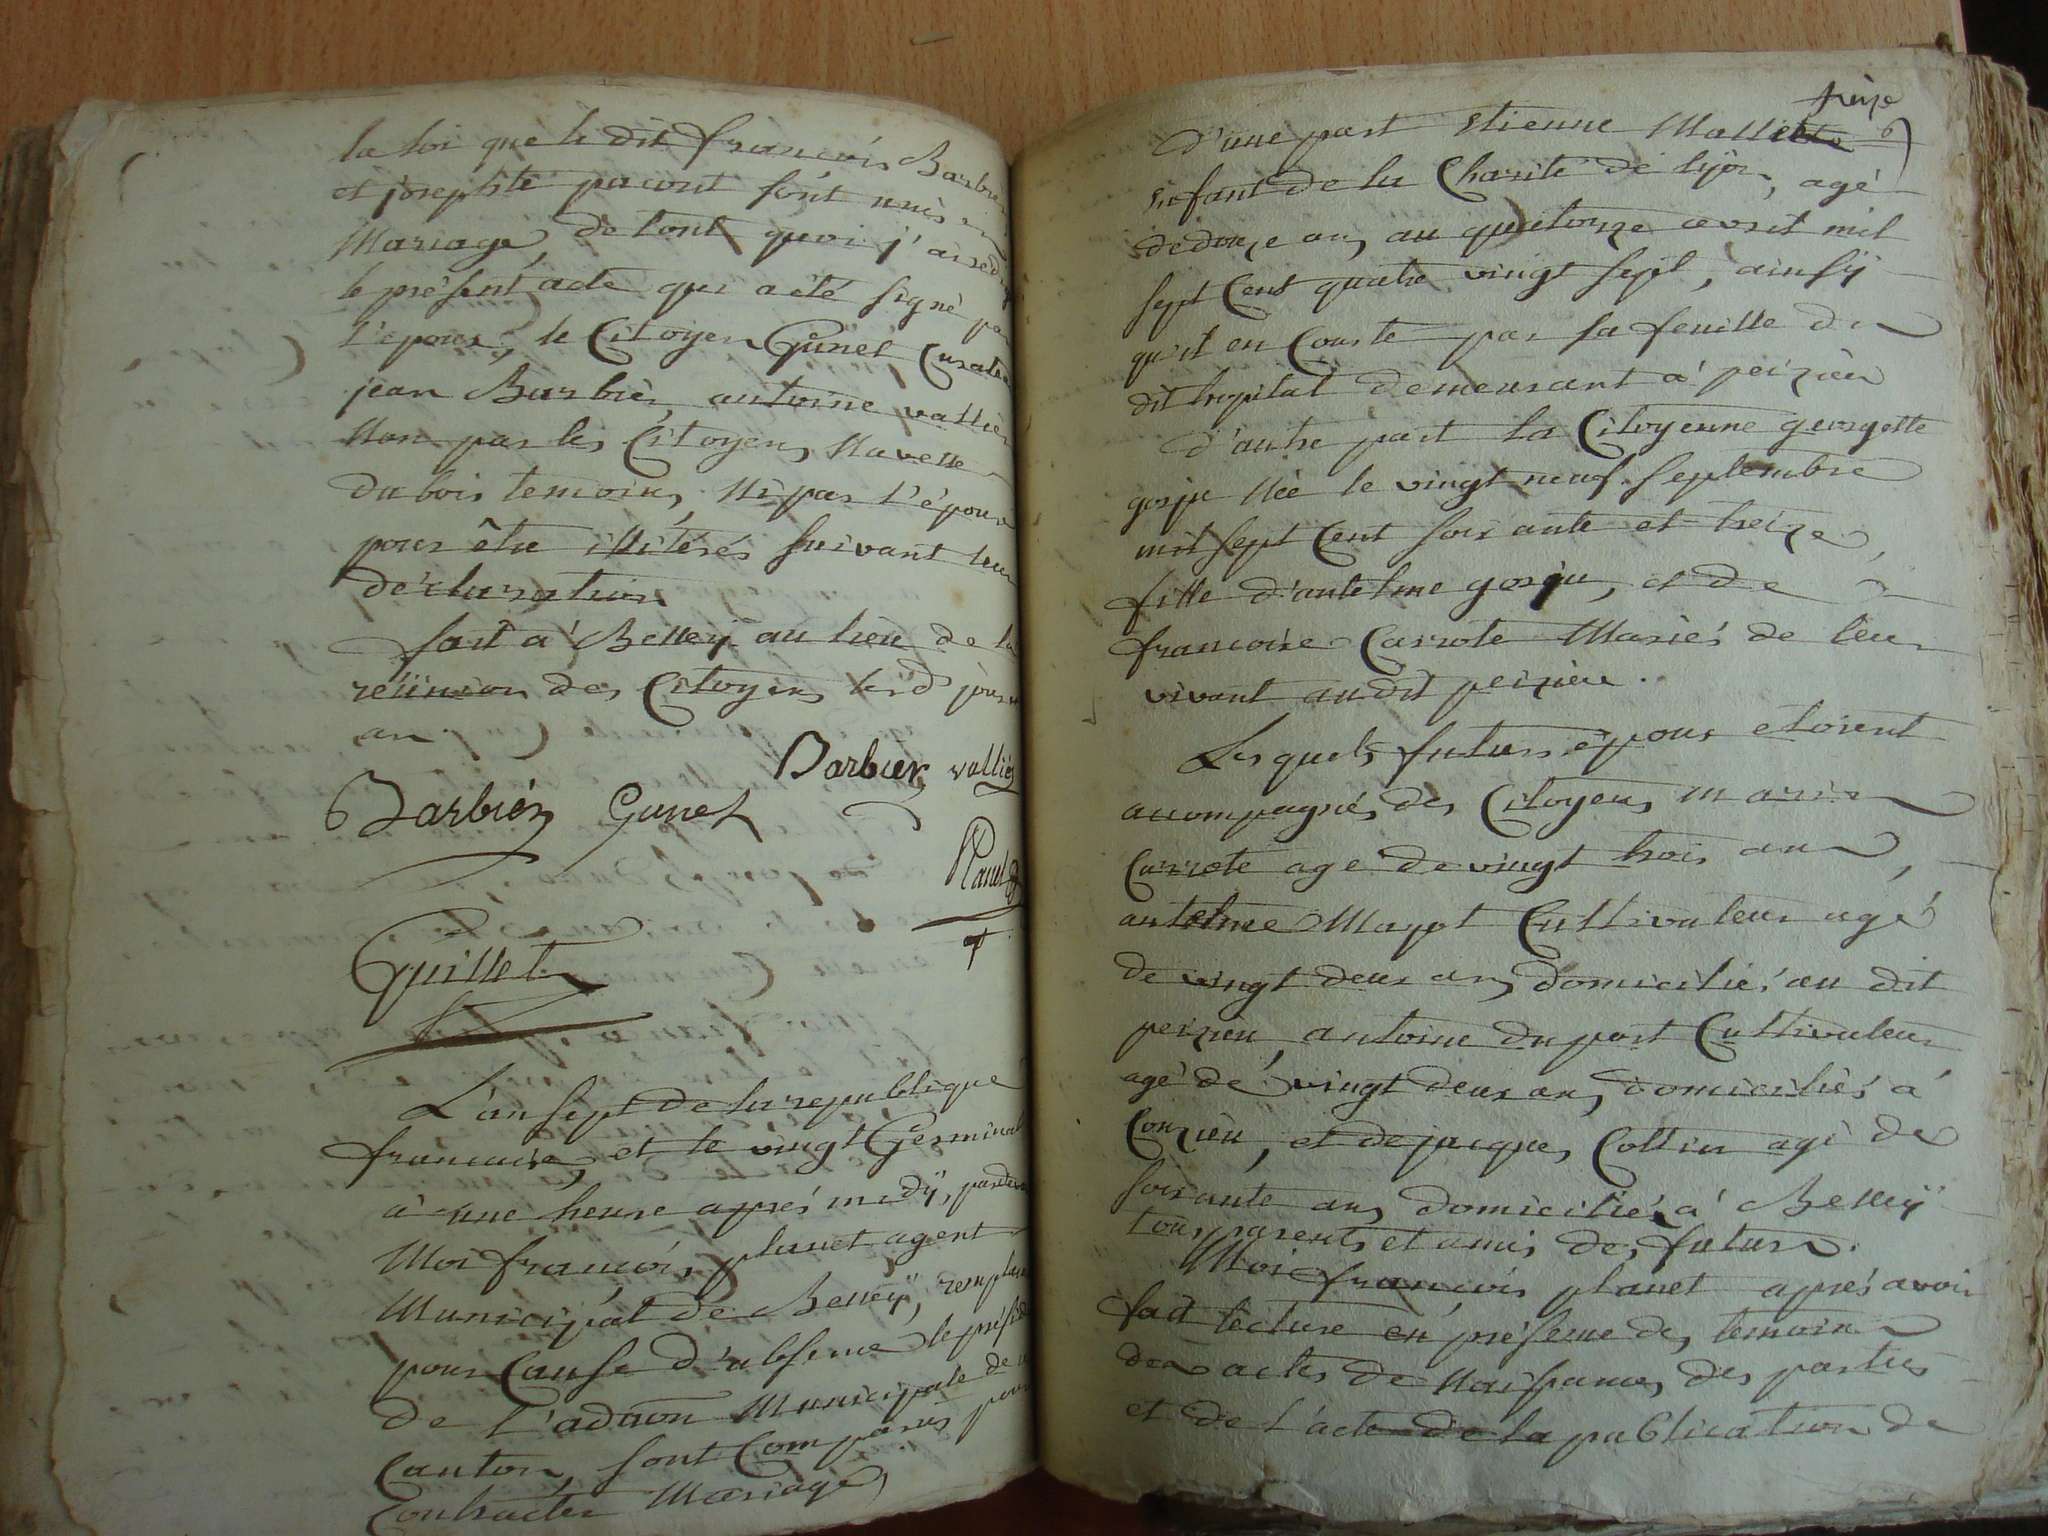 la loi que le dit françois Barbier
et josephte pacout sont unis en
Mariage, de tout quoi j'ai redigé
le présent acte qui a eté signé par
l'epoux, le Citoyen Gunet Curateur
jean Barbier, antoine vallier
Non par les Citoyens Navette
dubois temoins, Ni par l'épouse
pour être illitérés suivant leur
déclaration
fait a Belleÿ au lieu de la
reünion des Citoyens lesd jour
an.
Barbier vallier
Barbiér Gunet
Planet
Guillet
L'an sept de la republique
francaise, et le vingt Germinal
à une heure aprés midÿ, pardevant
Moi françois planet agent
Municipal de Belleÿ, remplaçant
pour Cause d'absence le président
de l'adtion Municipale de
Canton, sont Comparus pour
Contracter Mariage,
treize
D'une part Etienne Mallette
Enfant de la Charité de lÿon, agé
de douze ans au quatorze avril mil
sept Cent quatre vingt sept, ainsÿ
qu'il en Conste par la feuille du
dit hopital demeurant à peizieu
D'autre part la Citoyenne georgette
gosju Née le vingt neuf Septembre
mil sept Cent soixante et treize,
fille d'antelme gosju, et de
francoise Carrote Mariés de leur
vivant audit peizieu.
Lesquels futurs époux etoient
accompagnés des Citoyens marin
Carrote agé de vingt trois ans,
antelme Mayot Cultivateur agé
de vingt deux ans domiciliés au dit
peizieu, antoine duport Cultivateur
agé de vingt deux ans domiciliés à
Conzieu, et de jacques Collin agé de
soixante ans domiciliés à Belleÿ
tous parents et amis des futurs.
Moi françois planet aprés avoir
fait lecture en présence des temoins
des actes de Naissances des parties
et de l'acte de la publication de